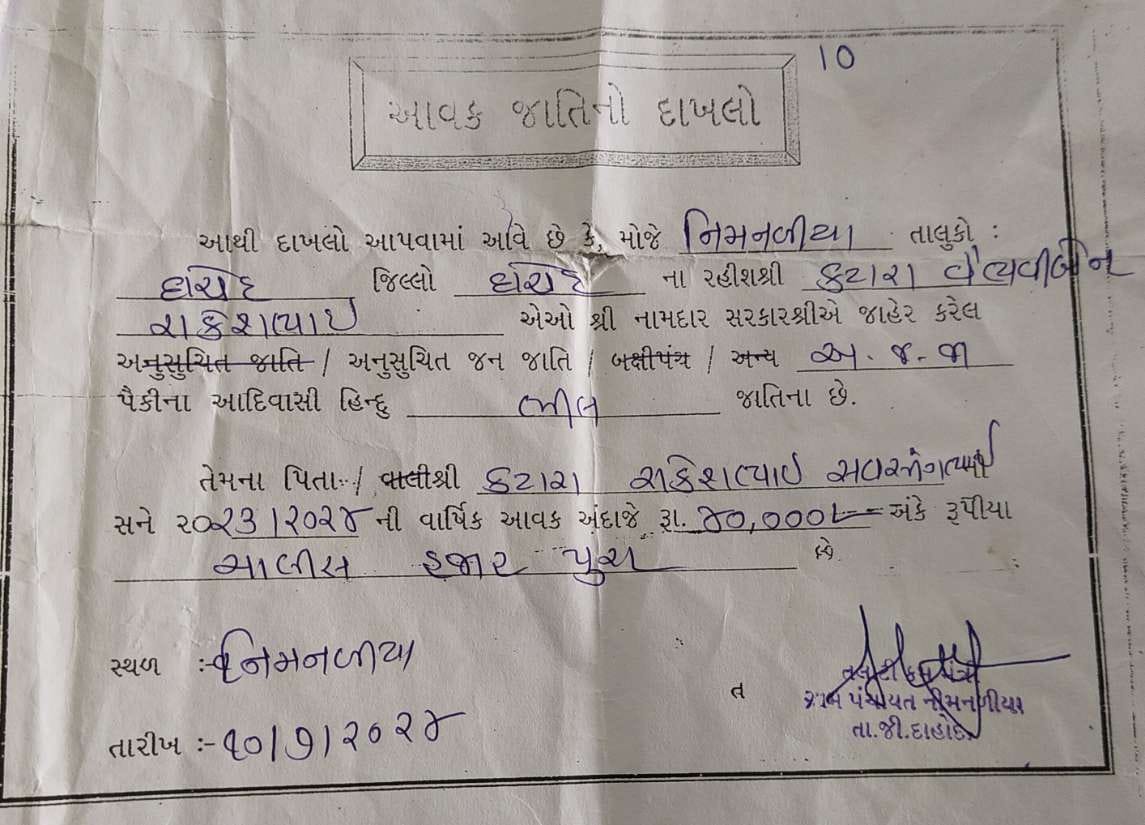 10
આવક જાતિનો દાખલો
આથી દાખલો આપવામાં આવે છે કે, મોજે નિમનળીયા તાલુકો :
દાહોદ જિલ્લો દાહોદ ના રહીશશ્રી કટારા વૈભવીબેન
રાકેશભાઈ એઓ શ્રી નામદાર સરકારશ્રીએ જાહેર કરેલ
અનુસુચિત જાતિ / અનુસુચિત જન જાતિ / બક્ષીપંચ / અન્ય અ. જ. જા
પૈકીના આદિવાસી હિન્દુ ભીલ જાતિના છે.
તેમના પિતા / વાલીશ્રી કટારા રાકેશભાઈ
સને ૨૦૨૩/૨૦૨૪ ની વાર્ષિક આવક અંદાજે રૂા. ૪૦,૦૦૦/- અંકે રૂપીયા
ચાલીસ હજાર પુરા છે.
સ્થળ :- નિમનળીયા
તારીખ :- ૧૦/૭/૨૦૨૪
ત
તલાટી કમ મંત્રી
ગ્રામ પંચાયત નીમનળીયા
તા.જી.દાહોદ